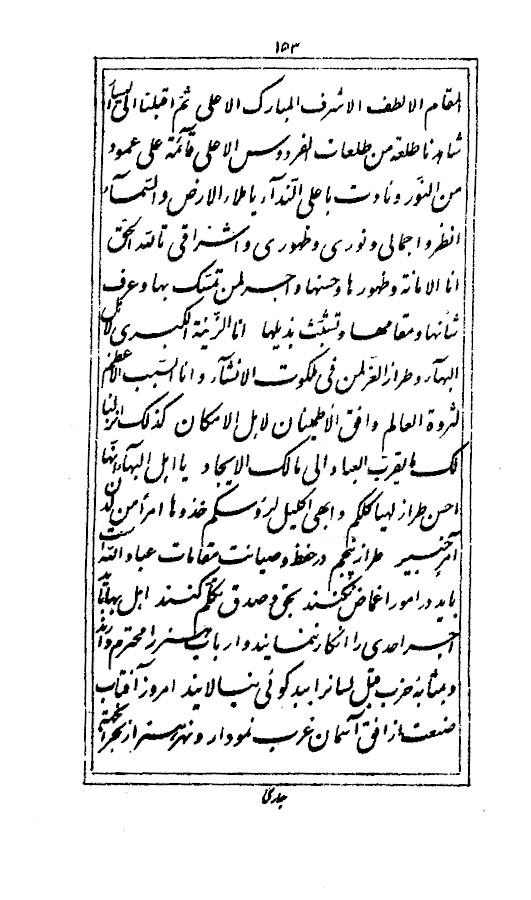 ١٥٣
المقام الالطف الاشرف المبارک الاعلی ثمّ اقبلنا الی الیسار
شاهدنا طلعة من طلعات الفردوس الاعلی قآئمة علی عمود
من النّور و نادت باعلی النّدآء یا ملاء الارض و السّمآء
انظروا جمالی و نوری و ظهوری و اشراقی تاللّه الحقّ
انا الامانة و ظهورها و حسنها و اجر لمن تمسّک بها و عرف
شأنها و مقامها و تشبّث بذیلها انا الزّینة الکبری لاهل
البهآء و طراز العزّ لمن فی ملکوت الانشآء و انا السّبب الاعظم
لثروة العالم و افق الاطمینان لاهل الامکان کذلک انزلنا
لک ما یقرّب العباد الی مالک الایجاد یا اهل البهآء انّها
احسن طراز لهیاکلکم و ابهی اکلیل لرؤسکم خذوها امراً من لدن
آمر خبیر طراز پنجم در حفظ و صیانت مقامات عباد اللّه است
باید در امور اغماض نکنند بحقّ و صدق تکلّم کنند اهل بها باید
اجر احدی را انکار ننمایند و ارباب هنر را محترم دارند
و بمثابه حزب قبل لسان را ببدگوئی نیالایند امروز آفتاب
صنعت از افق آسمان غرب نمودار و نهر هنر از بحر آنجهت
جاری